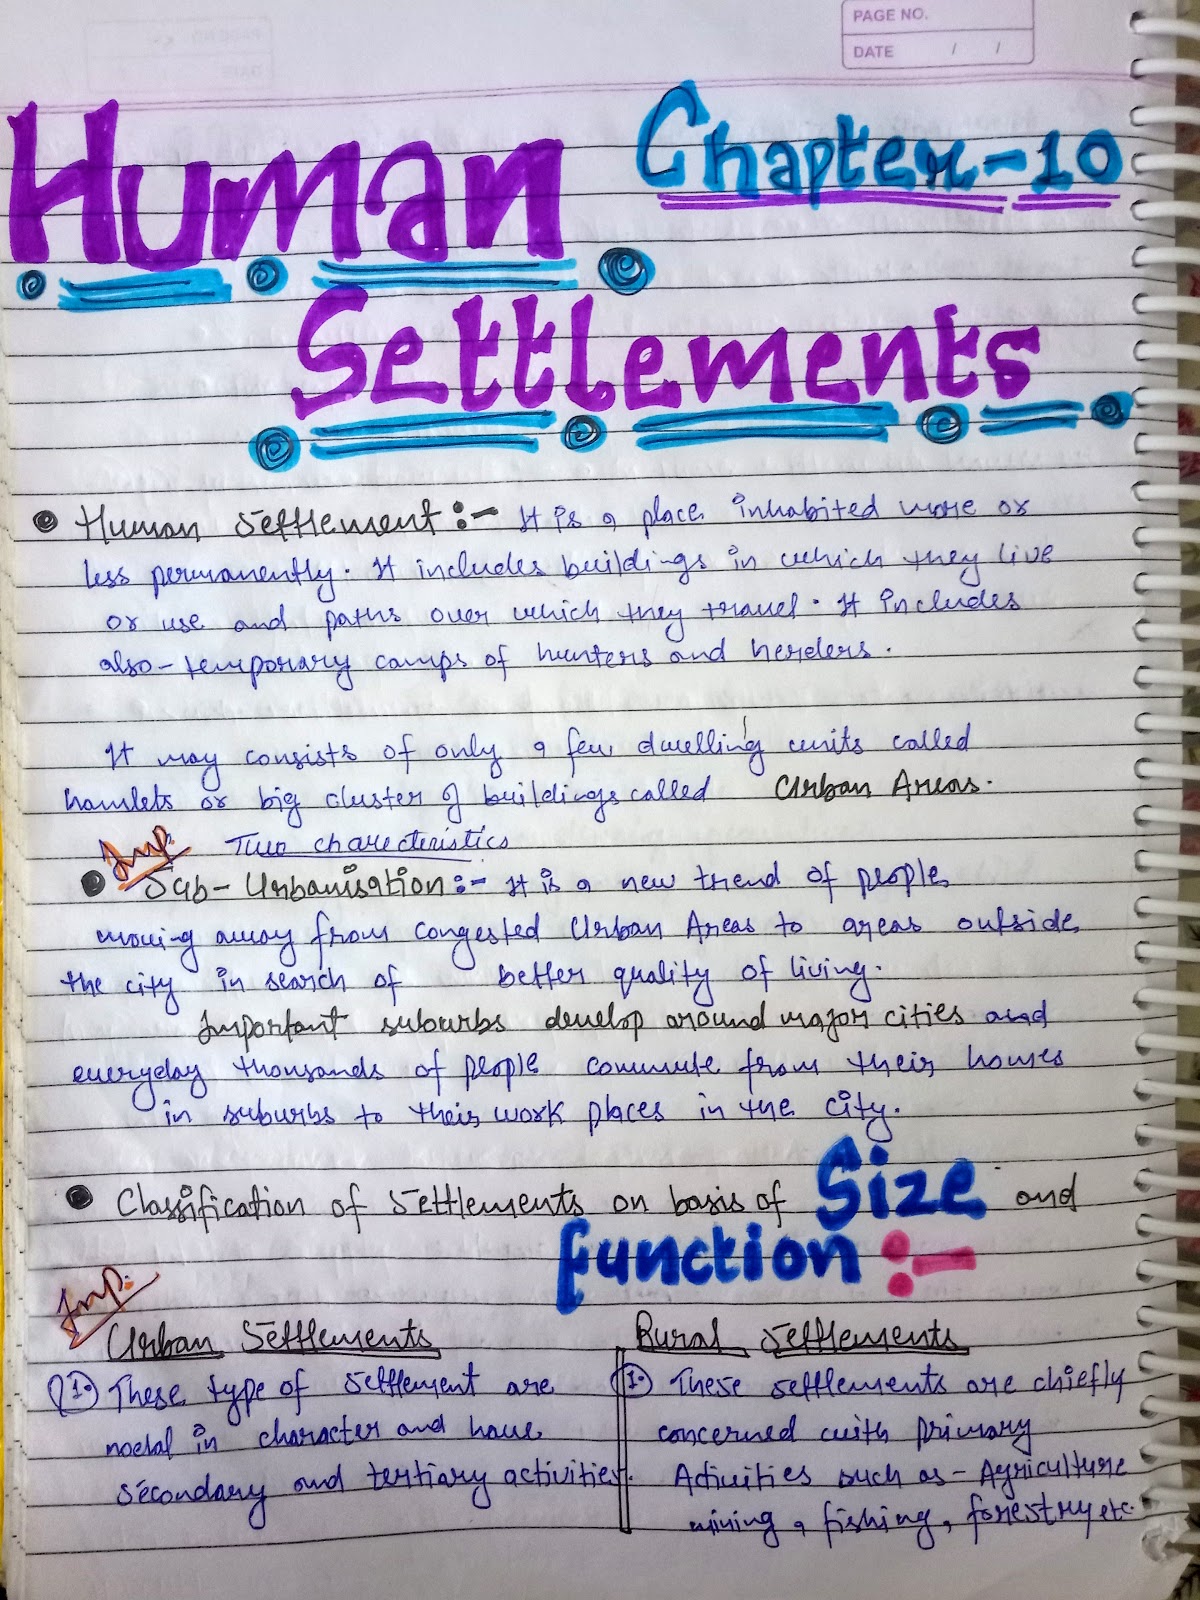 PAGE NO.
DATE / /
Human Chapter-10
Settlements
Human Settlement :- It is a place inhabited more or
less permanently. It includes buildings in which they live
or use and paths over which they travel. It includes
also - temporary camps of hunters and herders.
It may consists of only a few dwelling units called
hamlets or big cluster of buildings called Urban Areas.
Imp. Two charecteristics
Sub-Urbanisation :- It is a new trend of people
moving away from congested Urban Areas to areas outside
the city in search of better quality of living.
Important suburbs develop around major cities and
everyday thousands of people commute from their homes
in suburbs to their work places in the city.
Classification of Settlements on basis of Size and
function :-
Imp.
Urban Settlements
1. These type of settlement are
nodal in character and have
secondary and tertiary activities.
Rural Settlements
1. These settlements are chiefly
concerned with primary
Activities such as - Agriculture
mining, fishing, forestry etc.